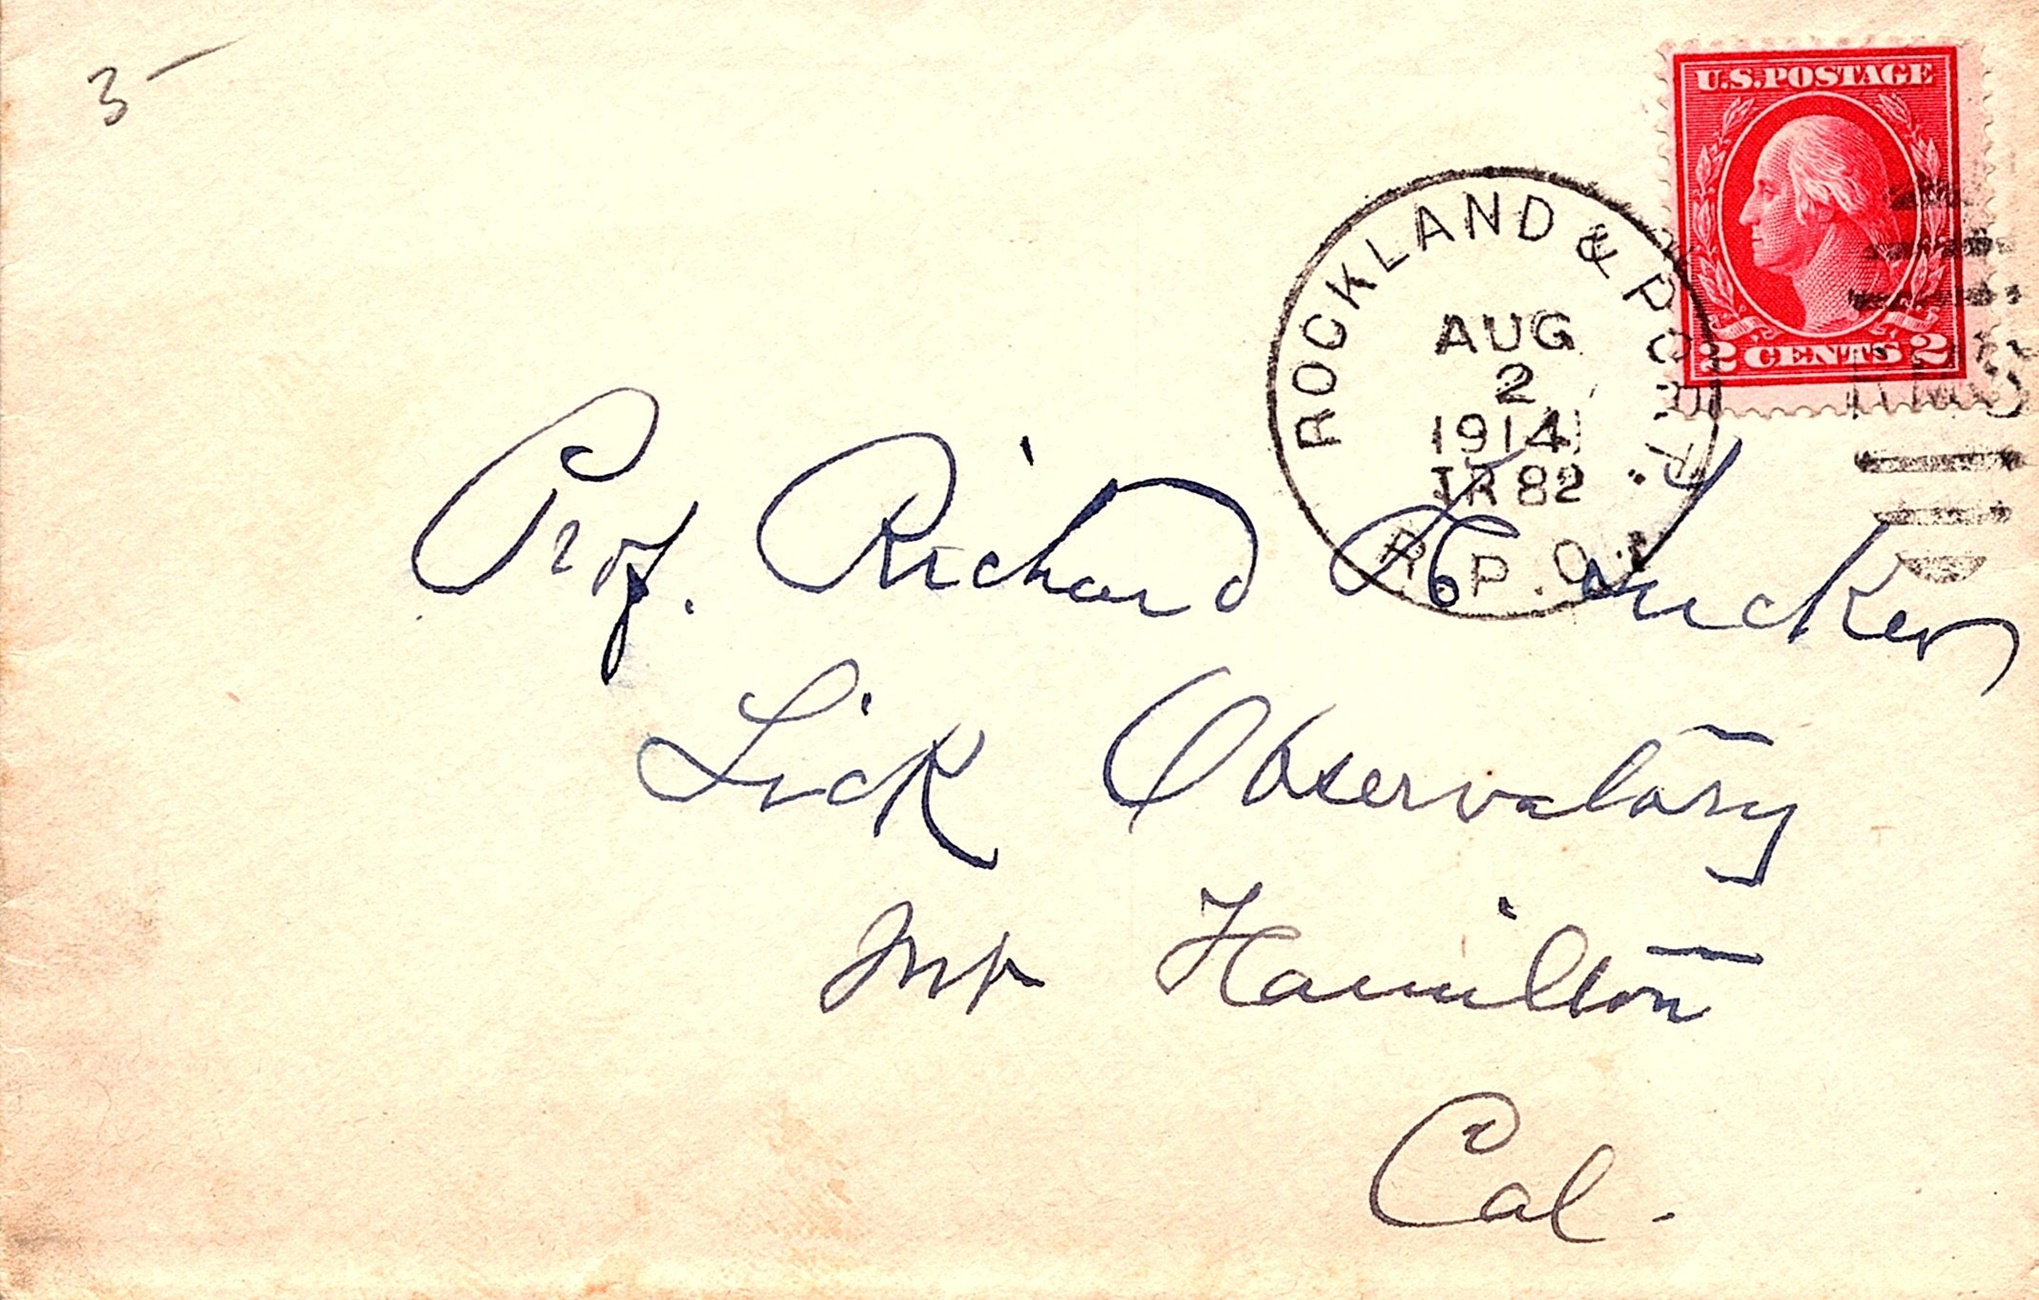 3 -
U.S.POSTAGE
2 CENTS 2
ROCKLAND & PORT.
AUG
2
1914
TR 82
R.P.O.
Prof. Richard H Tucker
Lick Observatory
Mt Hamilton
Cal.